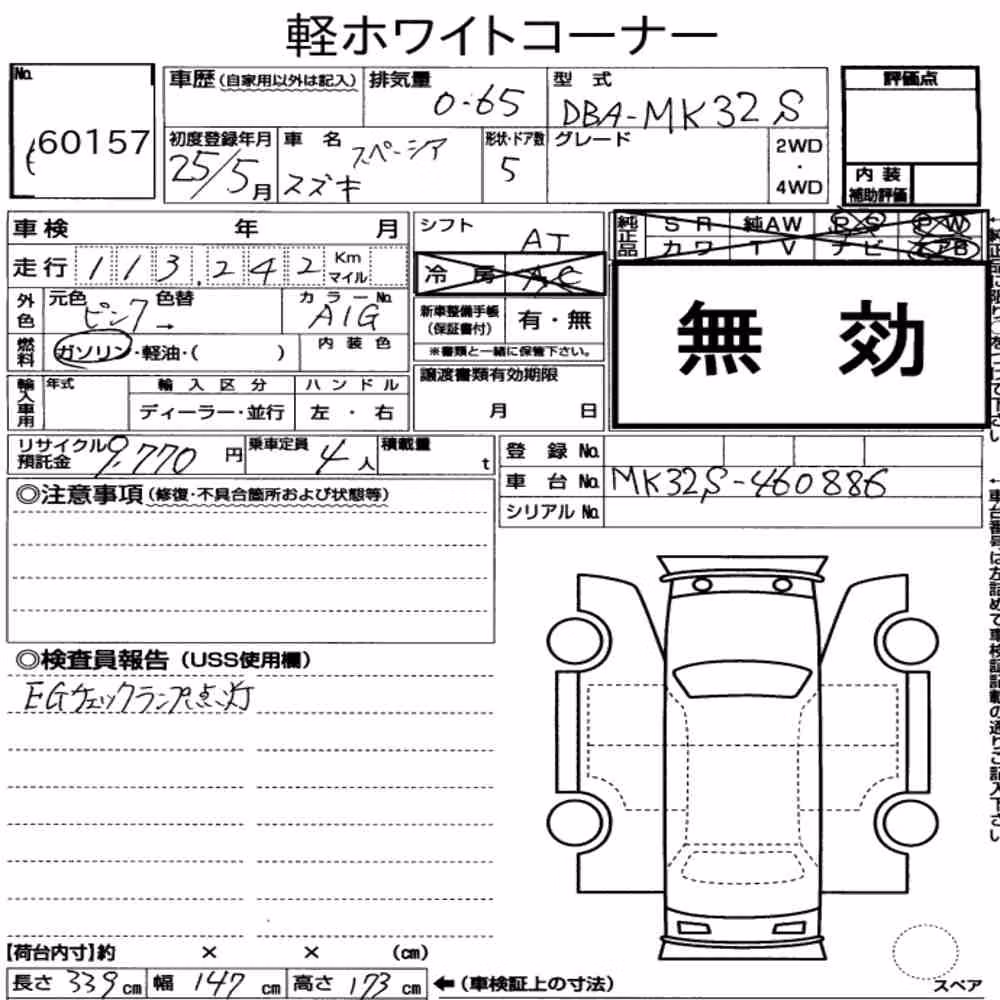 軽ホワイトコーナー
No.
60157
車歴(自家用以外は記入)
排気量
0.65
型 式
DBA-MK32S
評価点
初度登録年月
25/5月
車 名
スペーシア
スズキ
形状・ドア数
5
グレード
2WD
・
4WD
内 装
補助評価
車検 年 月
シフト
AT
純正品
SR 純AW PS PW
カワ TV ナビ エアB
走行 113,242 Km
マイル
冷 房 AC
無 効
外色
元色 色替
ピンク→
カラーNo.
A1G
新車整備手帳
(保証書付)
有・無
燃料
ガソリン・軽油・( )
内 装 色
※書類と一緒に保管下さい。
輸入車用
年式
輸 入 区 分
ハ ン ド ル
譲渡書類有効期限
ディーラー・並行
左 ・ 右
月 日
リサイクル
預託金
9,770 円
乗車定員
4 人
積載量
t
登 録 No.
車 台 No. MK32S-460886
シリアル No.
◎注意事項(修復・不具合箇所および状態等)
◎検査員報告(USS使用欄)
EGチェックランプ点灯
【荷台内寸】約 × × (cm)
長さ 339 cm 幅 147 cm 高さ 173 cm ←(車検証上の寸法)
スペア
←車台番号は左詰めで車検証記載の通りご記入下さい